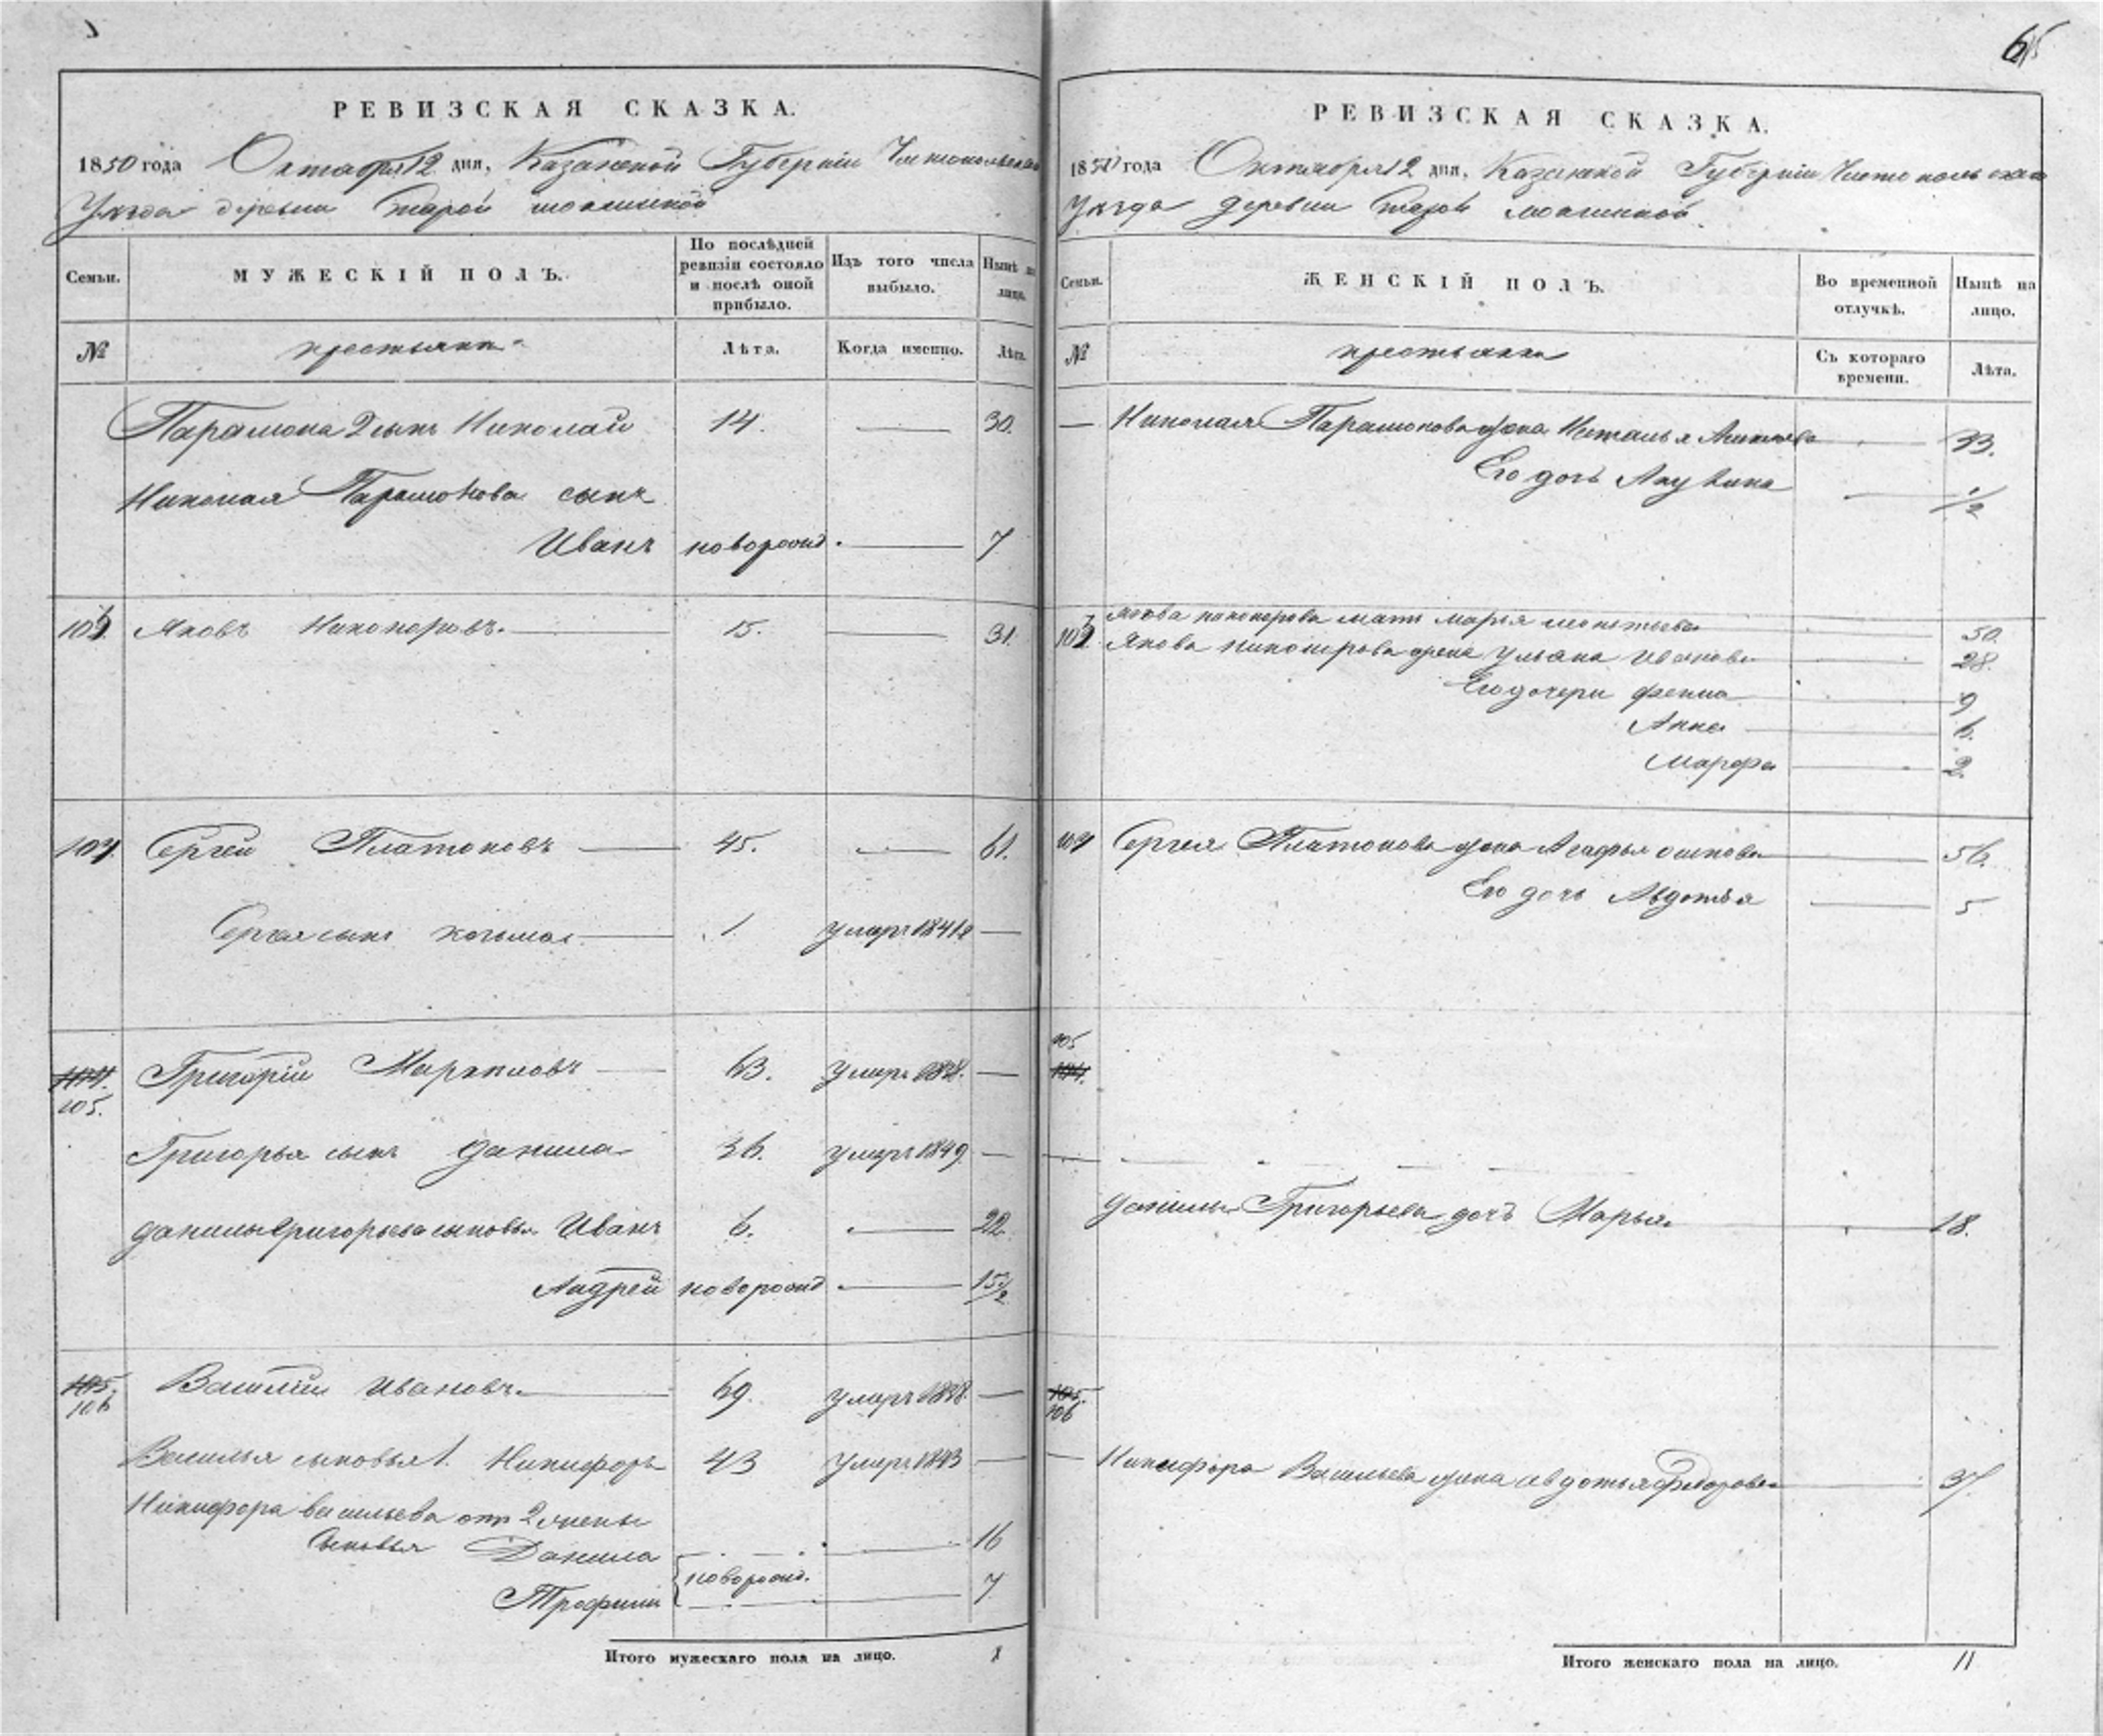 65
РЕВИЗСКАЯ СКАЗКА.
1850 года Октября 12 дня, Казанской Губерніи Чистопольскаго
Уѣзда деревни Старой
Семьи.
МУЖЕСКІЙ ПОЛЪ.
По послѣдней ревизіи состояло и послѣ оной прибыло.
Изъ того числа выбыло.
Нынѣ на лицо.
№
крестьяне
Лѣта.
Когда именно.
Лѣта.
Парамона 2 сынъ Николай 14. — 30.
Николая Парамонова сынъ
Иванъ новорожд. — 7
Яковъ Никоноровъ. 15. — 31.
104. Сергей Платоновъ — 45. — 61.
Сергея сынъ Козьма — 1 умеръ 1841 —
104. 105. Григорій — 63. умеръ —
Григорья сынъ Данила 36. умеръ 1849. —
Данилы Григорьева сыновья Иванъ 6. — 22.
Андрей новорожд — 15 1/2
105. 106 Василий Ивановъ. — 69. умеръ —
Василья сыновья 1. Никифоръ 43 умеръ 1843 —
Никифора Васильева отъ 2 жены
Сыновья Данила — 16
новорожд.
Трофимъ — 7
Итого мужескаго пола на лицо. 8
РЕВИЗСКАЯ СКАЗКА.
1850 года Октября 12 дня, Казанской Губерніи Чистопольскаго
Уѣзда деревни Старой
Семьи.
ЖЕНСКІЙ ПОЛЪ.
Во временной отлучкѣ.
Нынѣ на лицо.
№
крестьянки
Съ котораго времени.
Лѣта.
— Николая Парамонова жена Наталья — 33.
Его дочь Акулина — 1/2
Якова Никонорова мать Марья — 50.
Якова Никонорова жена Ульяна Иванова — 28.
Его дочери — 9
Анна — 6.
Марфа — 2.
104 Сергея Платонова жена Агафья Осипова — 56.
Его дочь Авдотья — 5
105
104.
Данилы Григорьева дочь Марья. — 18.
105.
106
— Никифора Васильева жена Авдотья Федорова — 37
Итого женскаго пола на лицо. 11